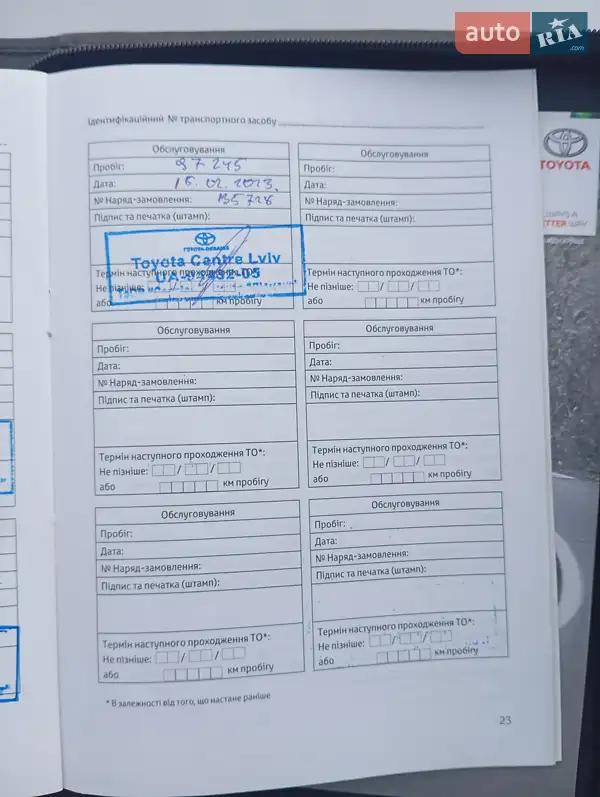 auto RIA .com
TOYOTA
ALWAYS A
BETTER WAY
Ідентифікаційний № транспортного засобу
Обслуговування
Пробіг: 97 245
Дата: 16.02.2023.
№ Наряд-замовлення: В5728
Підпис та печатка (штамп):
TOYOTA-UKRAINE
Toyota Centre Lviv
UA-03432-05
Термін наступного проходження ТО*:
Не пізніше: / /
або км пробігу
Обслуговування
Пробіг:
Дата:
№ Наряд-замовлення:
Підпис та печатка (штамп):
Термін наступного проходження ТО*:
Не пізніше: / /
або км пробігу
Обслуговування
Пробіг:
Дата:
№ Наряд-замовлення:
Підпис та печатка (штамп):
Термін наступного проходження ТО*:
Не пізніше: / /
або км пробігу
Обслуговування
Пробіг:
Дата:
№ Наряд-замовлення:
Підпис та печатка (штамп):
Термін наступного проходження ТО*:
Не пізніше: / /
або км пробігу
Обслуговування
Пробіг:
Дата:
№ Наряд-замовлення:
Підпис та печатка (штамп):
Термін наступного проходження ТО*:
Не пізніше: / /
або км пробігу
Обслуговування
Пробіг:
Дата:
№ Наряд-замовлення:
Підпис та печатка (штамп):
Термін наступного проходження ТО*:
Не пізніше: / /
або км пробігу
* В залежності від того, що настане раніше
23